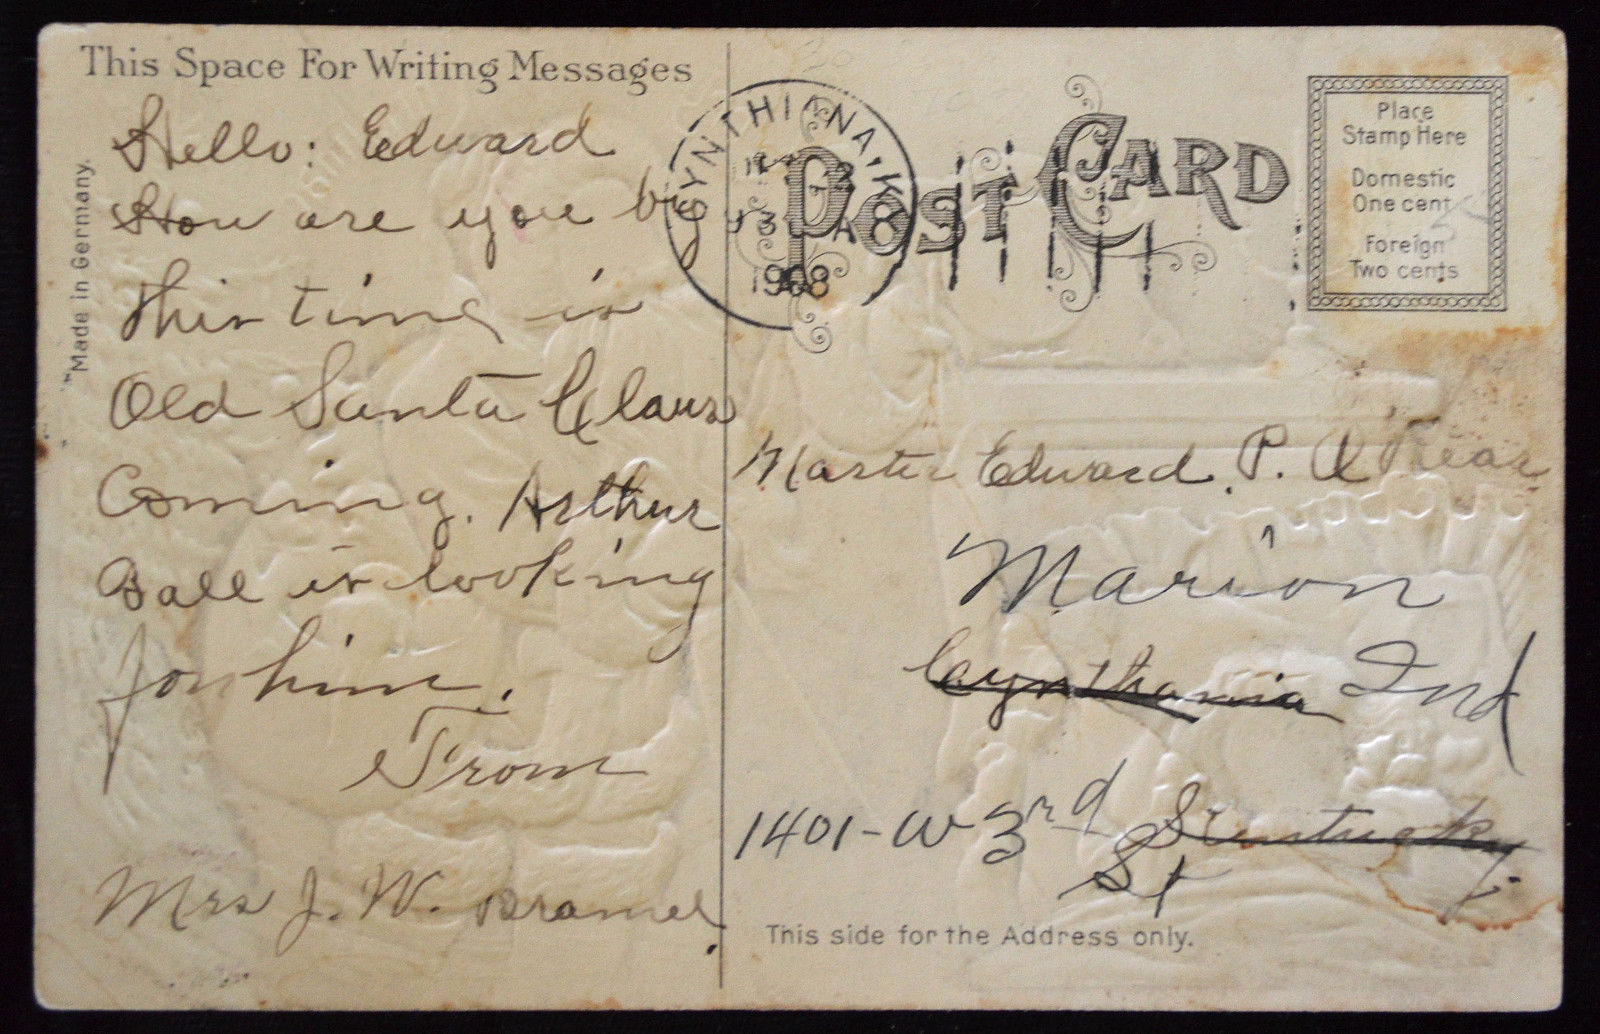 This Space For Writing Messages
Hello: Edward
How are you by
this time is
Old Santa Claus
Coming. Arthur
Ball is looking
for him.
From
Mrs J. W. Bramel.
"Made in Germany.
CYNTHIANA, KY
1908
POST CARD
Place
Stamp Here
Domestic
One cent
Foreign
Two cents
Master Edward. P.
Marion
Cynthania Ind
1401-W 3rd Kentucky.
St
This side for the Address only.